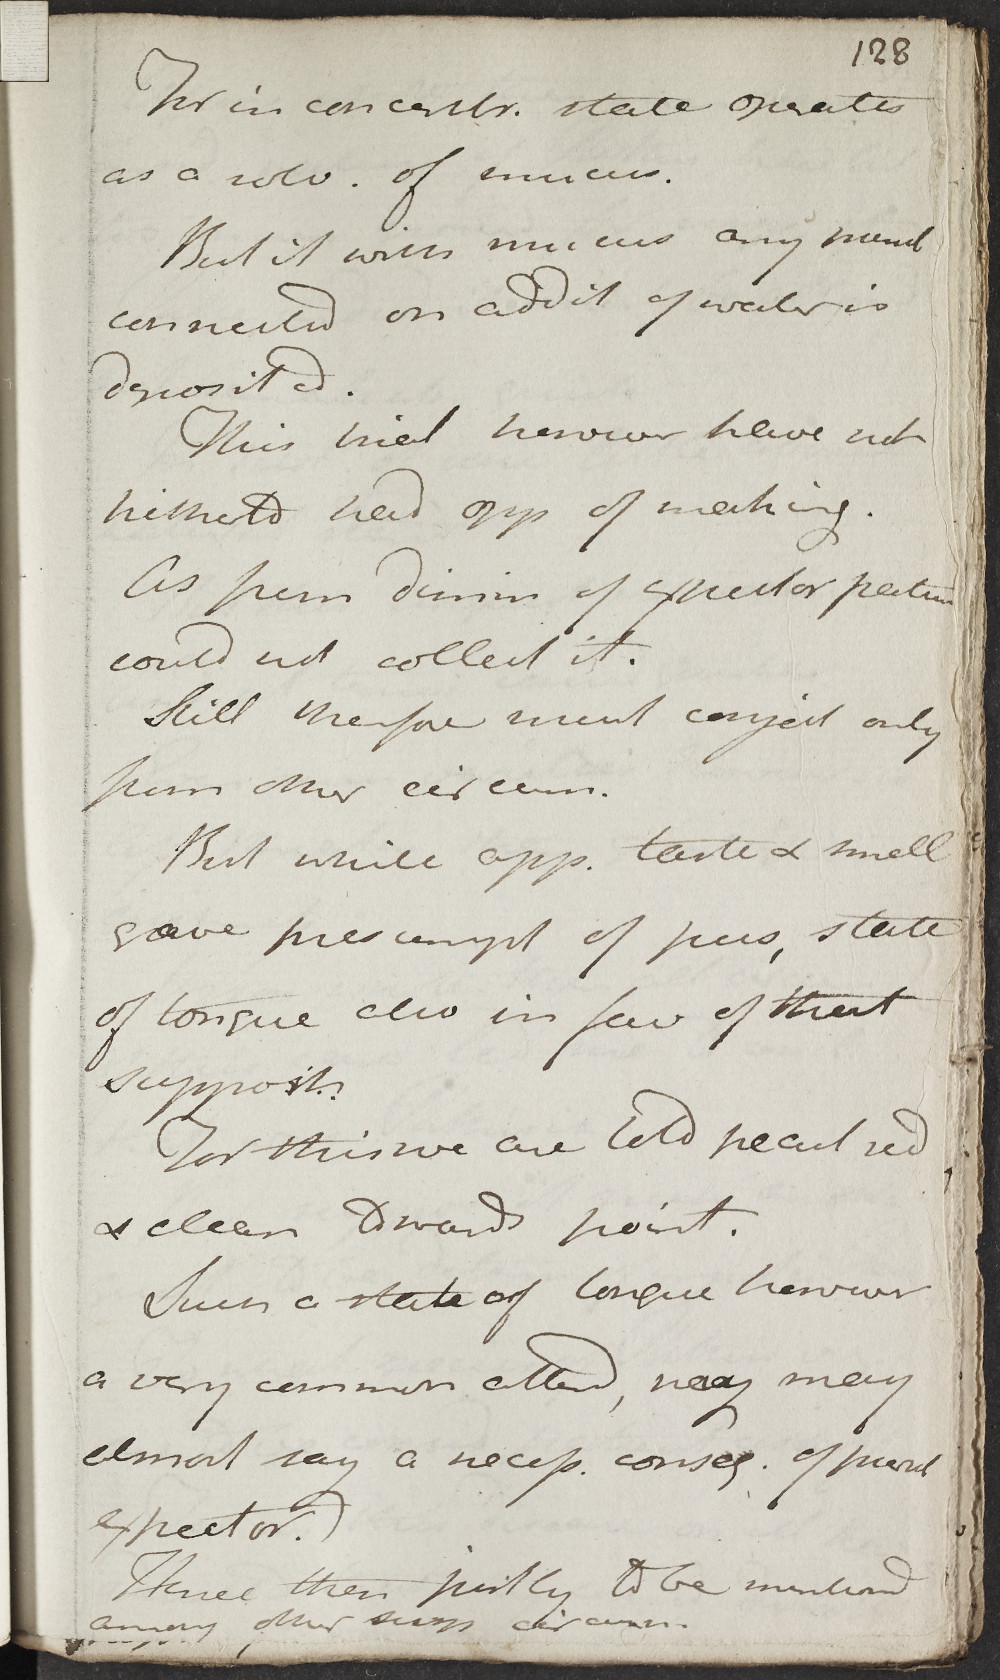 128
For in concentr. state operates
as a solv. of mucus.
But if with mucus any purul
connected on addit of water is
deposited.
This trial however have not
hitherto had opp of making.
As from dimin of expector patien
could not collect it.
Still therefore must conject only
from other circum.
But while app. taste & smell
gave presumpt of pus, state
of tongue also in fav of that
supposit.
For this we are told pecul red
& clean towards point.
Such a state of tongue however
a very common attend, nay may
almost say a necess. conseq. of purul
expector.
Hence then justly to be mentiond
among other susp circum.